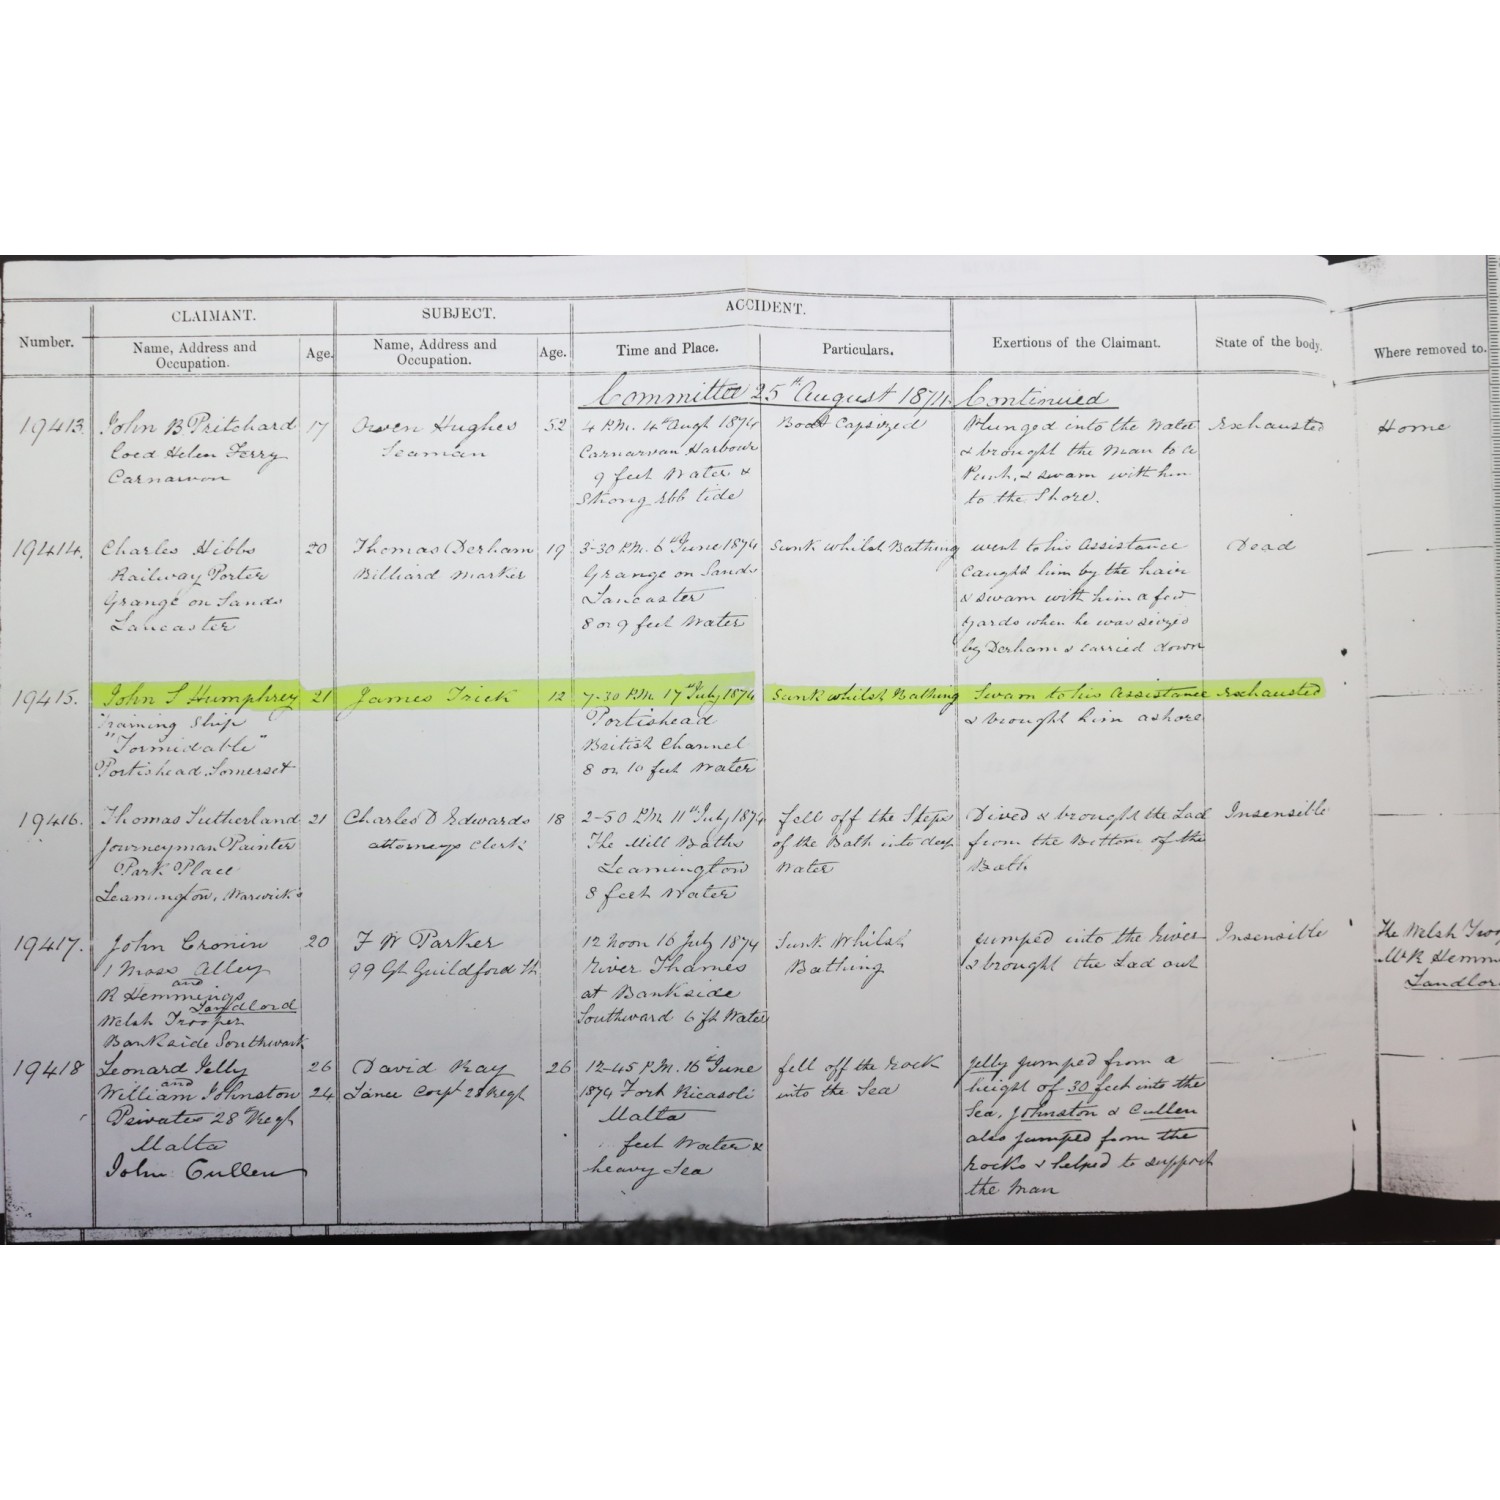 Number.
CLAIMANT.
Name, Address and
Occupation.
Age.
SUBJECT.
Name, Address and
Occupation.
Age.
ACCIDENT.
Time and Place.
Particulars.
Exertions of the Claimant.
State of the body.
Where removed to.
Committee 25th August 1874 Continued
19413.
John B Pritchard
Coed Helen Ferry
Carnarvon
17
Owen Hughes
Seaman
52
4 P.M. 4th Augt 1874
Carnarvan Harbour
9 feet Water &
Strong ebb tide
Boat Capsized
Plunged into the Water
& brought the Man to a
Punt, & swam with him
to the Shore.
Exhausted
Home
19414.
Charles Hibbs
Railway Porter
Grange on Sands
Lancaster
20
Thomas Derham
Billiard Marker
19
3-30 P.M. 6th June 1874
Grange on Sands
Lancaster
8 or 9 feet Water
Sunk whilst Bathing
went to his Assistance
Caught him by the hair
& swam with him a few
yards when he was seized
by Derham & carried down
Dead
19415.
John S Humphrey
Training Ship
"Formidable"
Portishead Somerset
21
James Trick
12
7-30 P.M. 17th July 1874
Portishead
British Channel
8 or 10 feet Water
Sunk whilst Bathing
Swam to his Assistance
& brought him ashore
Exhausted
19416.
Thomas Sutherland
Journeyman Painter
Park Place
Leamington, Warwicks
21
Charles D Edwards
Attorneys Clerk
18
2-50 P.M. 11th July 1874
The Mill Baths
Leamington
8 feet Water
fell off the Steps
of the Bath into deep
Water
Dived & brought the Lad
from the Bottom of the
Bath
Insensible
19417.
John Cronin
1 Moss Alley
and
R Hemmings
Landlord
Welsh Trooper
Bankside Southwark
20
F W Parker
99 Gt Guildford St
12 Noon 16 July 1874
River Thames
at Bankside
Southwark 6 ft Water
Sunk Whilst
Bathing
Jumped into the River
& brought the Lad out
Insensible
The Welsh Troo
Mr R Hemm
Landlor
19418
Leonard Jelly
and
William Johnston
Privates 28th Regt
Malta
John Cullen
26
24
David Ray
Lance Corpl 28 Regt
26
12-45 P.M. 16th June
1874 Fort Ricasoli
Malta
feet Water &
heavy Sea
fell off the Rock
into the Sea
Jelly jumped from a
height of 30 feet into the
Sea, Johnston & Cullen
also jumped from the
Rocks & helped to support
the Man